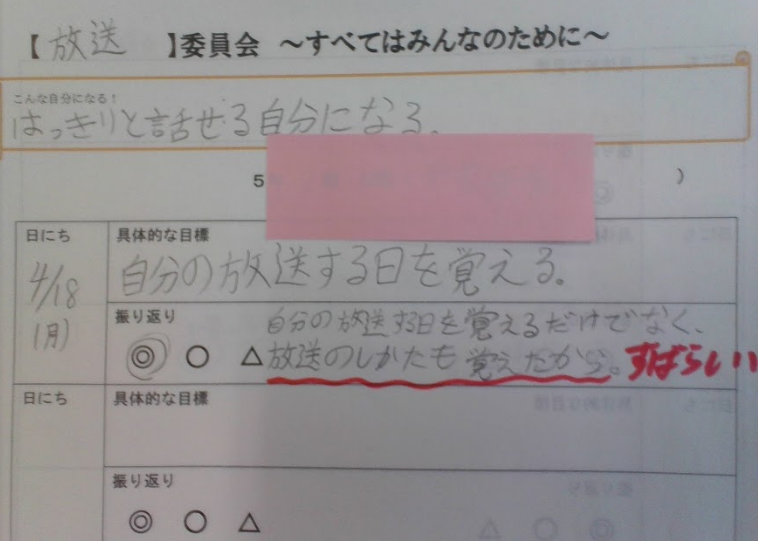 【 放送 】委員会 ～すべてはみんなのために～
こんな自分になる！
はっきりと話せる自分になる。
5 )
日にち 具体的な目標
4/18 自分の放送する日を覚える。
(月)
振り返り 自分の放送する日を覚えるだけでなく、
◎ ○ △ 放送のしかたも覚えたから。すばらしい
日にち 具体的な目標
振り返り
◎ ○ △